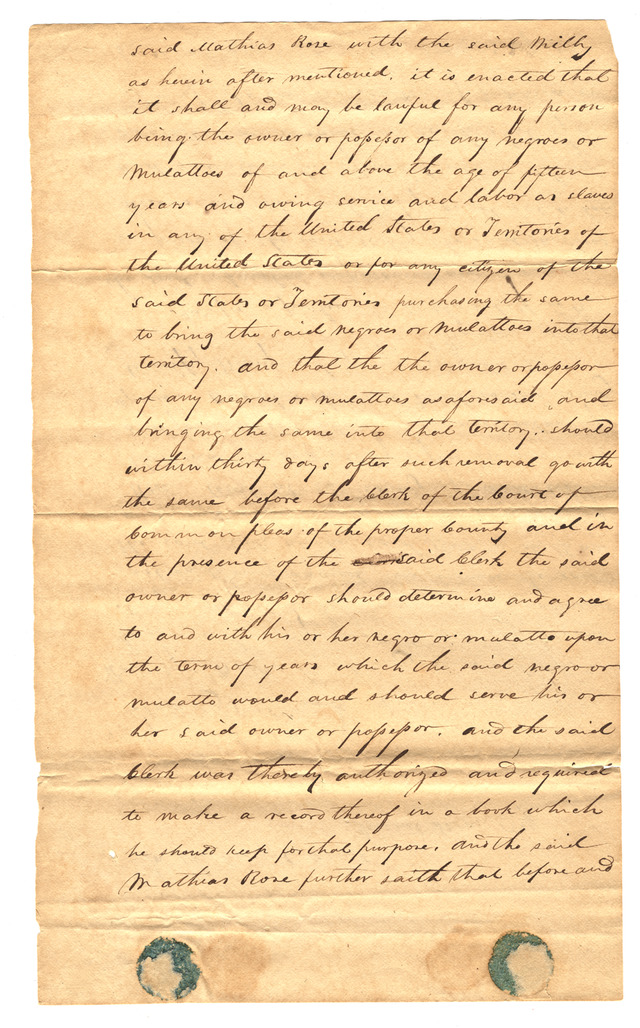 said Mathias Rose with the said Milly
as herein after mentioned. it is enacted that
it shall and may be lawful for any person
being the owner or possessor of any negroes or
Mulattoes of and above the age of fifteen
years and owing service and labor as slaves
in any of the United States or Territories of
the United States or for any citizen of the
said States or Territories purchasing the same
to bring the said negroes or Mulattoes into that
territory. and that the the owner or possessor
of any negroes or mulattoes as aforesaid and
bringing the same into that territory. should
within thirty days after such removal go with
the same before the Clerk of the Court of
Common pleas of the proper County and in
the presence of the said Clerk the said
owner or possessor should determine and agree
to and with his or her negro or mulatto upon
the term of years which the said negro or
mulatto would and should serve his or
her said owner or possessor. and the said
Clerk was thereby authorized and required
to make a record thereof in a book which
he should keep for that purpose. and the said
Mathias Rose further saith that before and